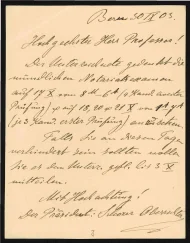 Bern 30 IX 03.
Hochgeehrter Herr Professor!
Der Unterzeichnete gedenkt die
mündlichen Notariatsexamen
auf 17 X von 8 U.
Prüfung) & auf 19, 20 & 21 X von
(je 3 Kand. erste Prüfung) an
Falls Sie an diesen Tagen
verhindert sein sollten wollen
Sie es dem Unterz. gefl. bis 3 X
mitteilen.
Mit Hochachtung!
Der Präsident: